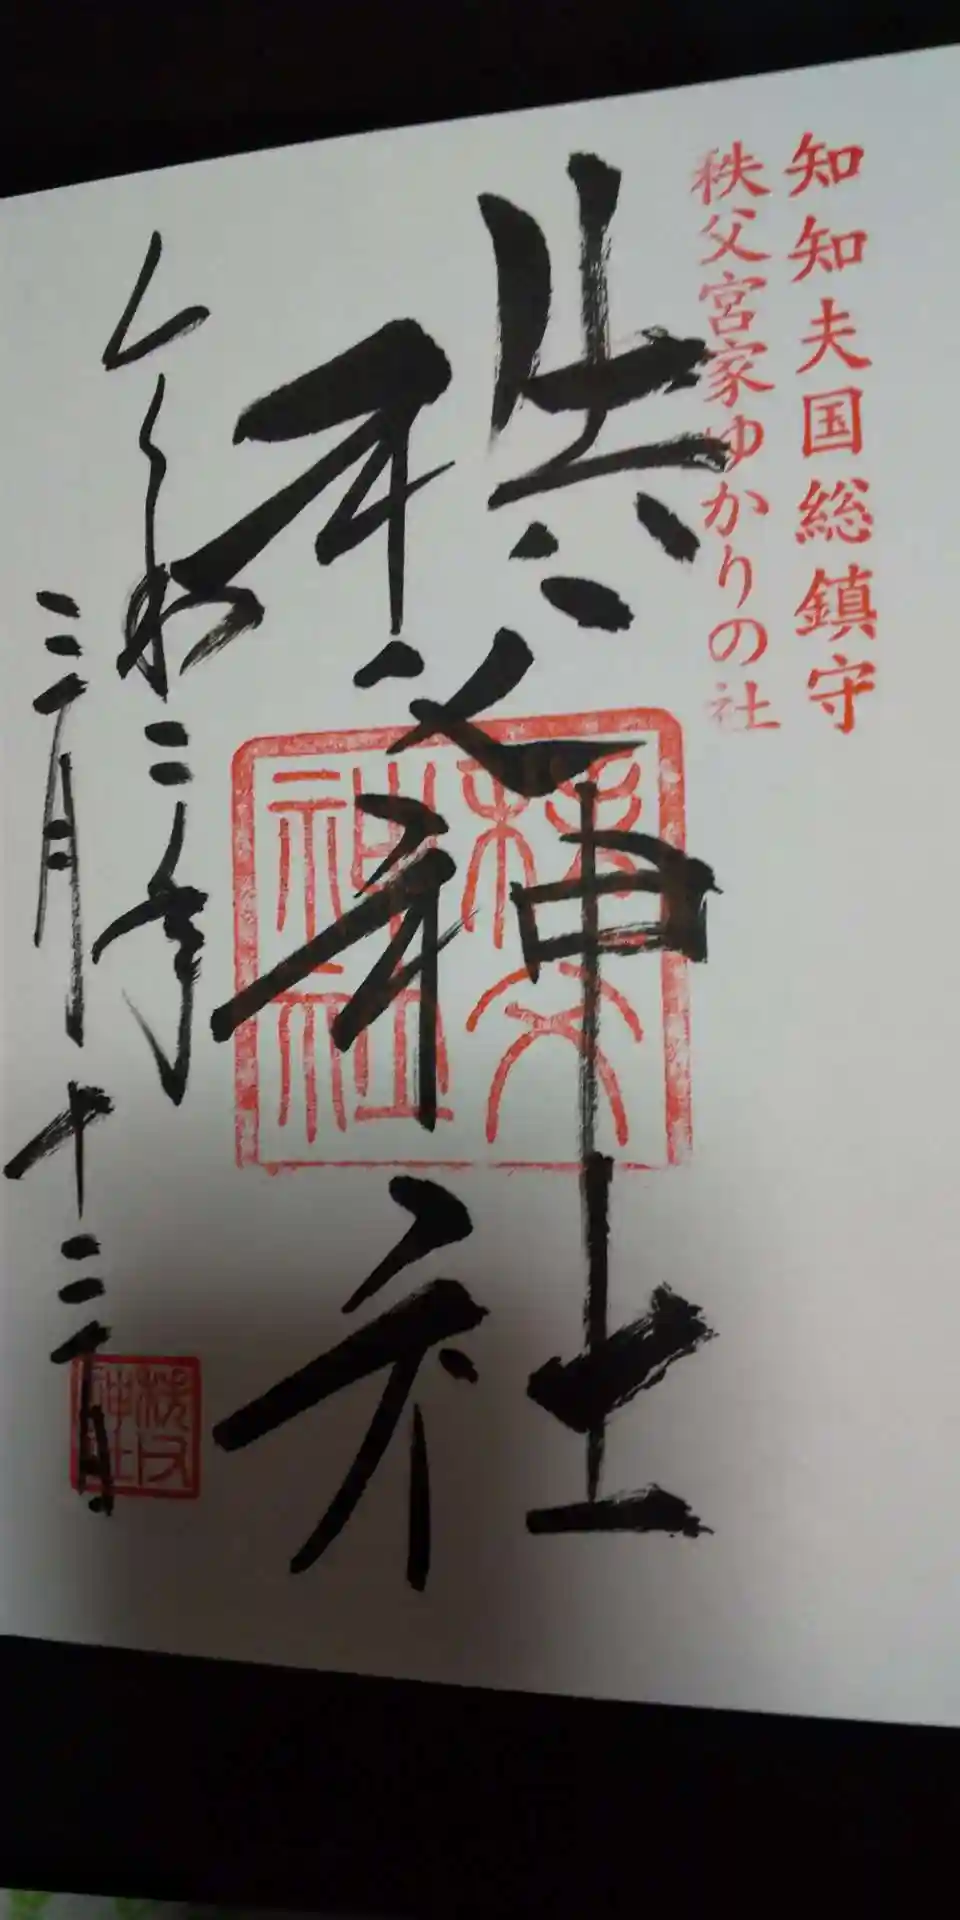 知知夫国総鎮守
秩父宮家ゆかりの社
秩父神社
秩父神社
令和二年
三月十三日
秩父神社